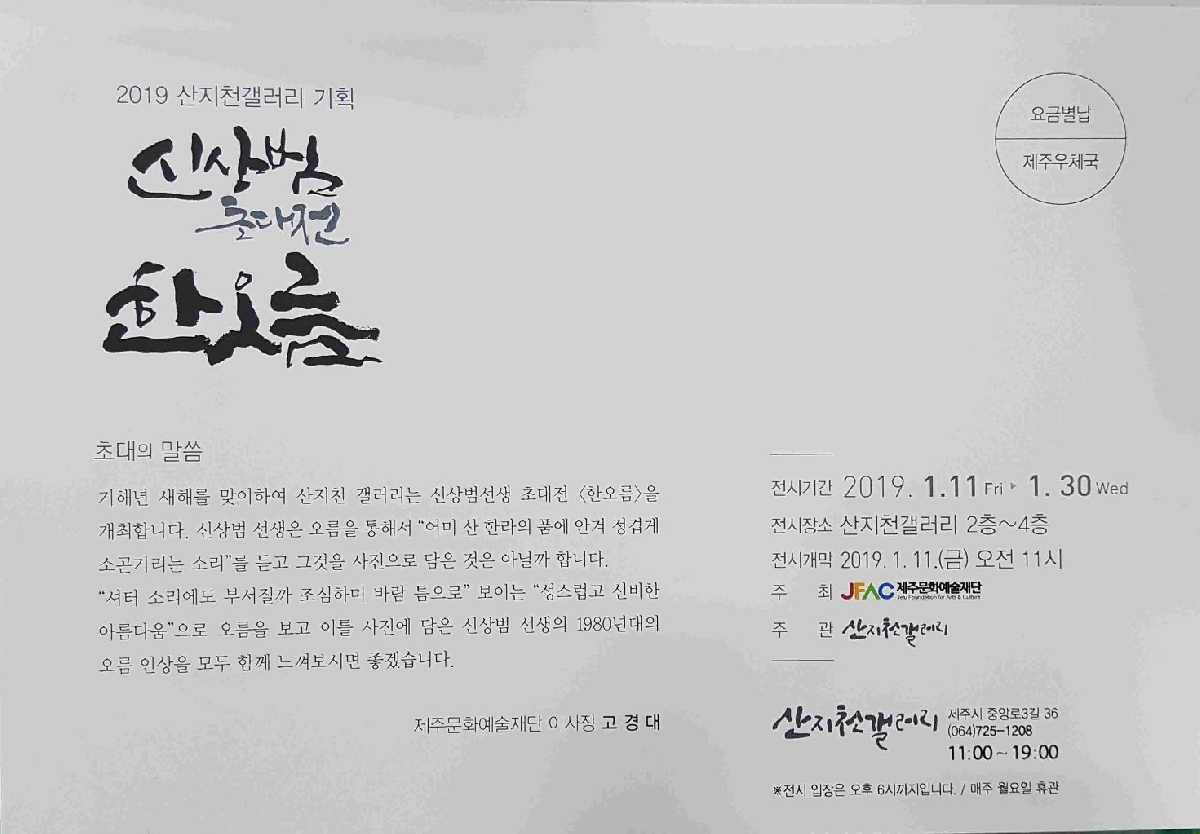 2019 산지천갤러리 기획
신상범
초대전
한오름
요금별납
제주우체국
초대의 말씀
기해년 새해를 맞이하여 산지천 갤러리는 신상범선생 초대전 〈한오름〉을
개최합니다. 신상범 선생은 오름을 통해서 “어미 산 한라의 품에 안겨 정겹게
소곤거리는 소리”를 듣고 그것을 사진으로 담은 것은 아닐까 합니다.
“셔터 소리에도 부서질까 조심하며 바람 틈으로” 보이는 “성스럽고 신비한
아름다움”으로 오름을 보고 이를 사진에 담은 신상범 선생의 1980년대의
오름 인상을 모두 함께 느껴보시면 좋겠습니다.
제주문화예술재단 이사장 고 경 대
전시기간 2019. 1.11 Fri ▸ 1. 30 Wed
전시장소 산지천갤러리 2층~4층
전시개막 2019. 1. 11.(금) 오전 11시
주 최 JFAC 제주문화예술재단
Jeju Foundation for Arts & Culture
주 관 산지천갤러리
산지천갤러리 제주시 중앙로3길 36
(064)725-1208
11:00 ~ 19:00
※전시 입장은 오후 6시까지입니다. / 매주 월요일 휴관